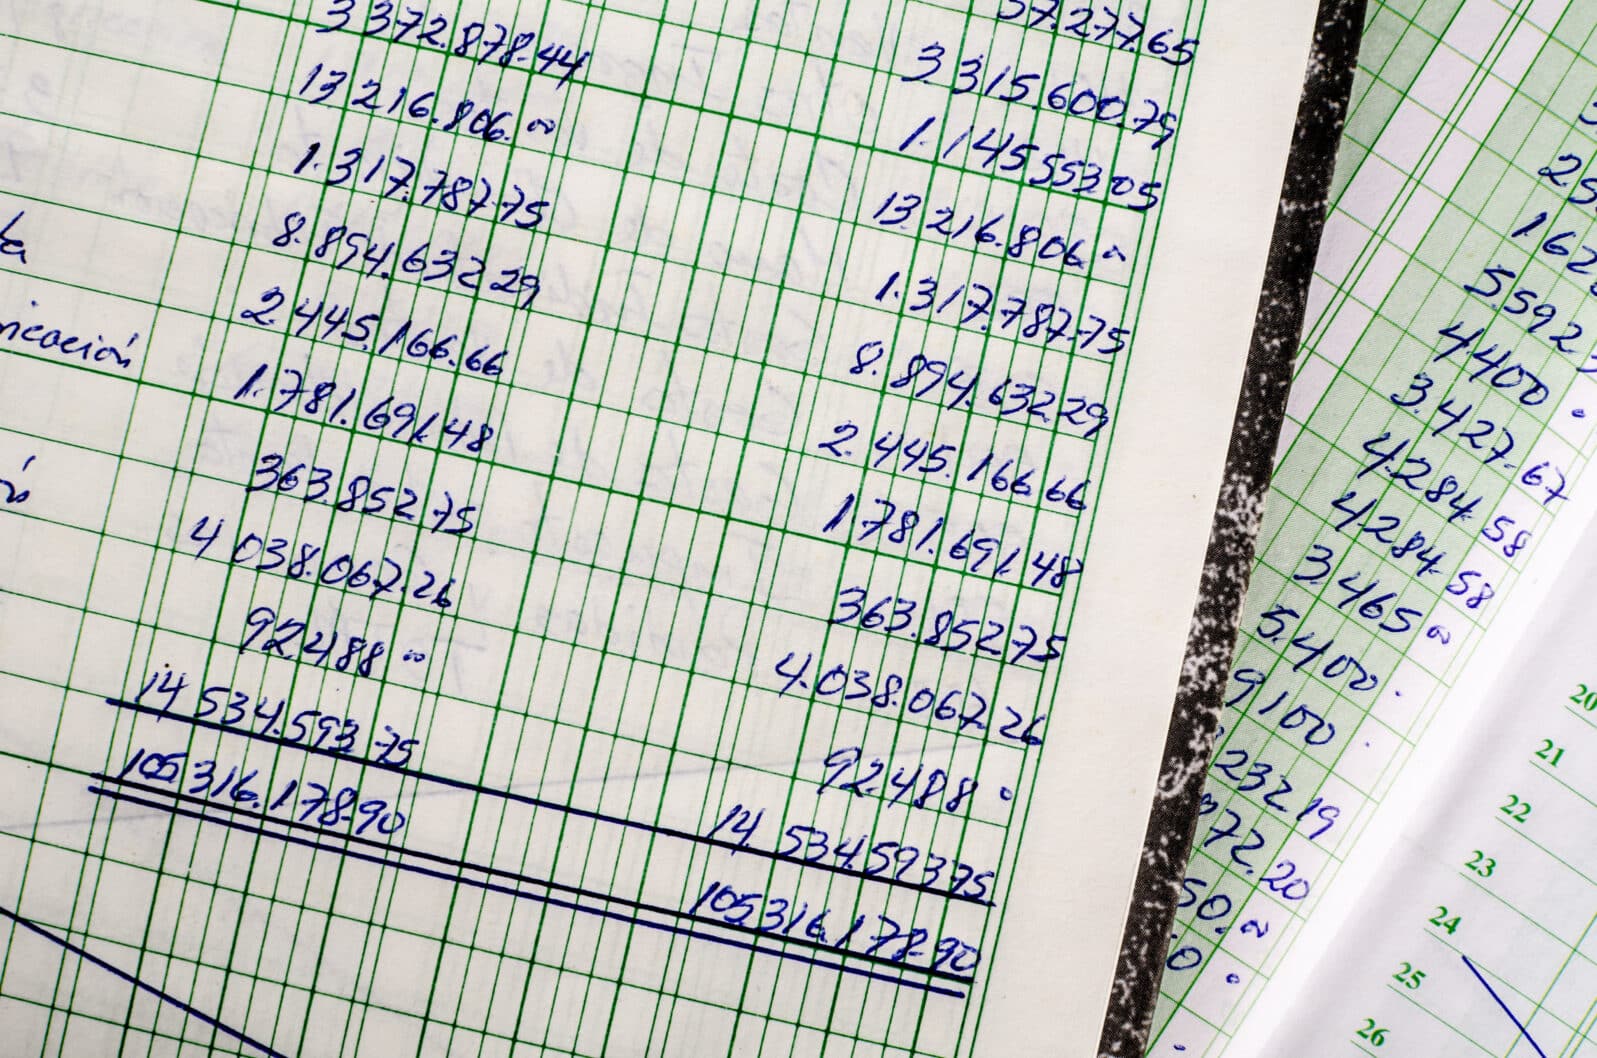 57.277.65
3372.878.44 3315.600.79
13216.806.00 1.145553 05
1.317.787.75 13.216.806.00
8.894.632 29 1.317.787.75
2.445.166.66 8.894.632.29
1.781.691.48 2.445.166.66
363.852 75 1.781.691.48
4 038.067.26 363.852 75
92.488 00 4.038.067.26
14 534.593 75 92.488
105316.178.90 14.534.593 75
105316.178.90
5.592
4400
3.427.67
4.284.58
4.284.58
3.465 00
5.400
9100
232 19
72.20
50.00
20
21
22
23
24
25
26